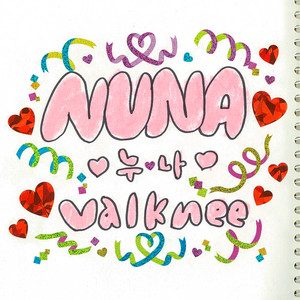 NUNA
누나
valknee